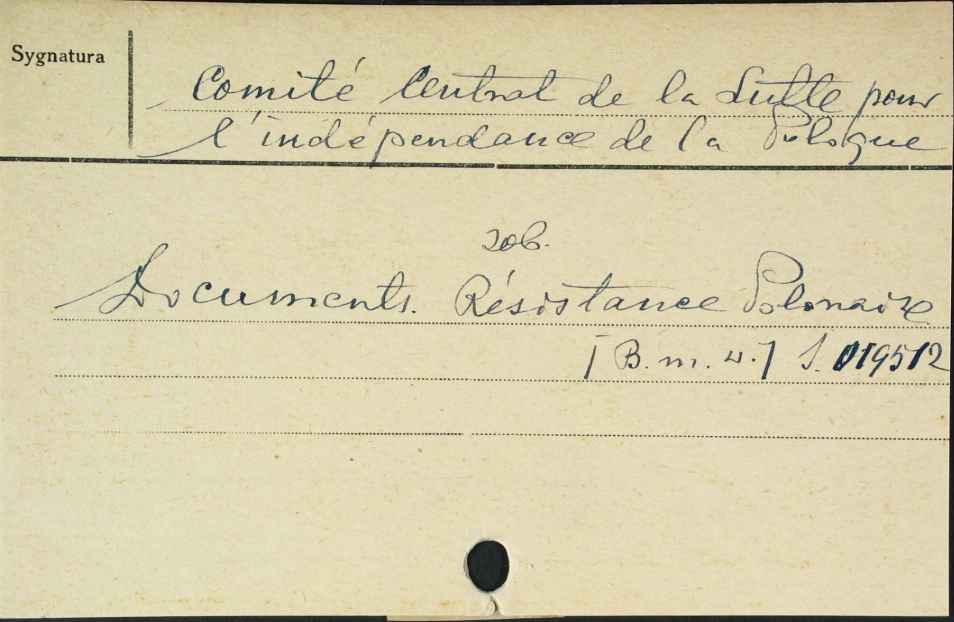 Sygnatura
Comité Central de la Lutte pour
l'indépendance de la Pologne
zob.
Documents. Résistance Polonaise
[B. m. w.] S. 019512